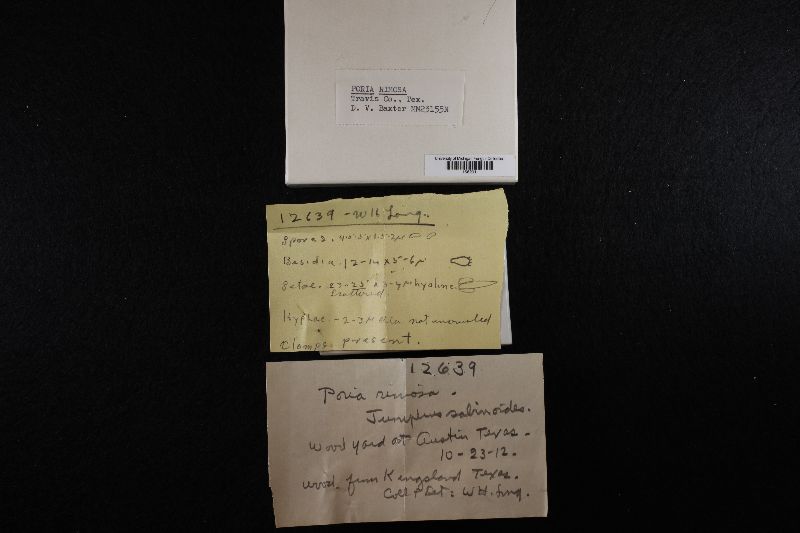 PORIA RIMOSA
Travis Co., Tex.
D. V. Baxter MM23155N
University of Michigan Fungus Collection
12639 - WH Long.
Spores. 4-5.5 x 1.5-2µ
Basidia. 12-14 x 5-6µ
Setae. 23-25 x 3-4µ hyaline.
Scattered.
Hyphae - 2-3µ dia not
Clamps present.
12639
Poria rimosa.
Juniperus sabinoides.
Wood yard at Austin Texas.
10-23-12.
wood from Kingsland Texas.
Coll & Det: WH. Long.